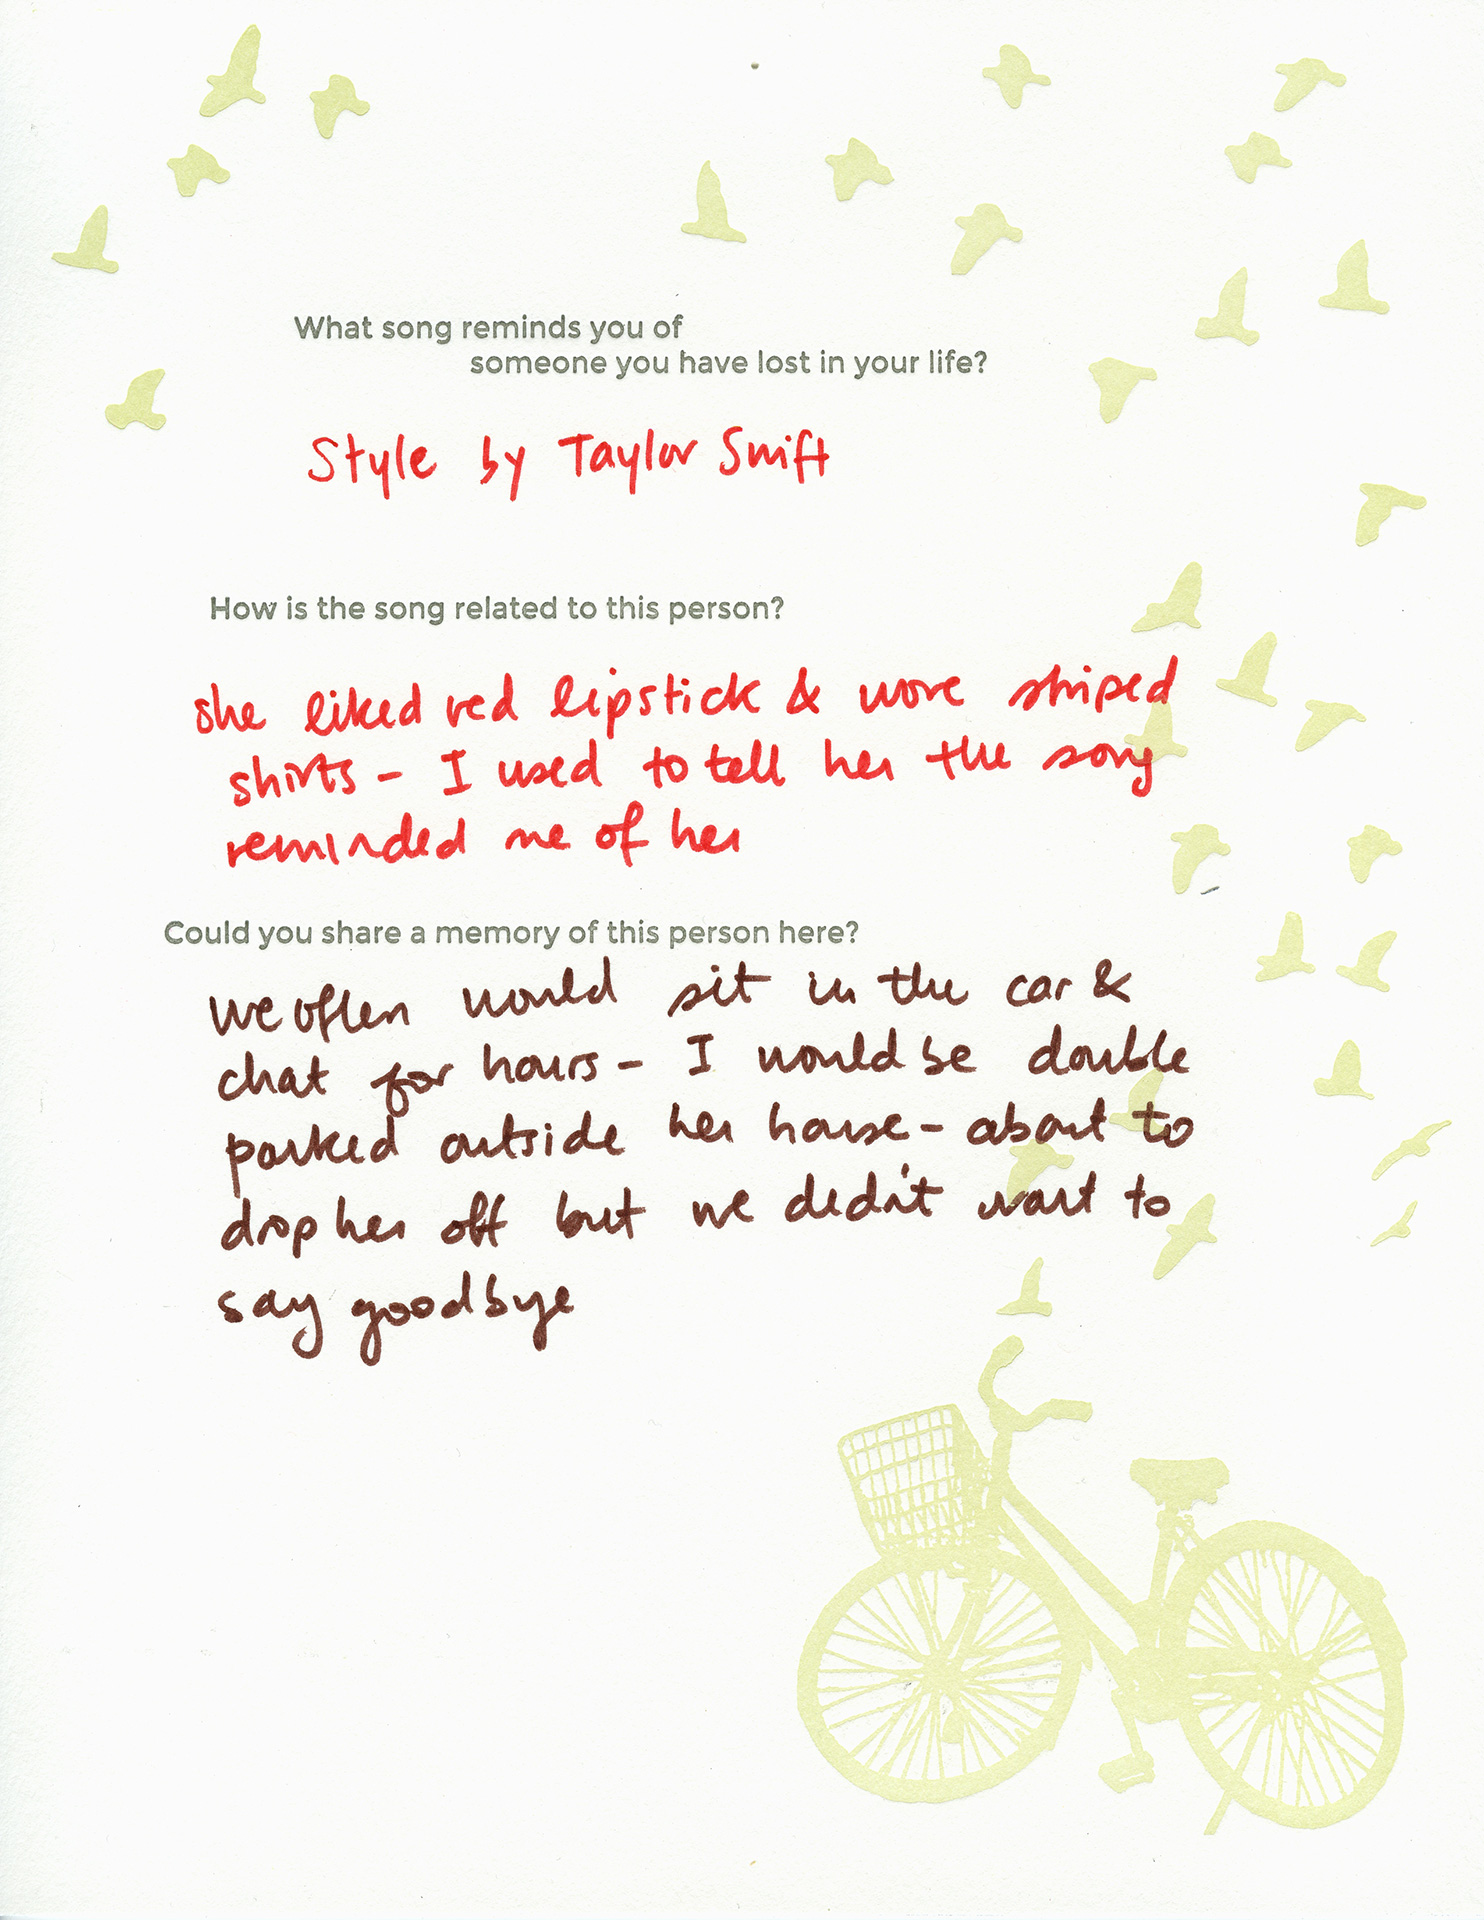 What song reminds you of
someone you have lost in your life?
Style by Taylor Swift
How is the song related to this person?
she liked red lipstick & wore striped
shirts - I used to tell her the song
reminded me of her
Could you share a memory of this person here?
We often would sit in the car &
chat for hours - I would be double
parked outside her house - about to
drop her off but we didn't want to
say goodbye